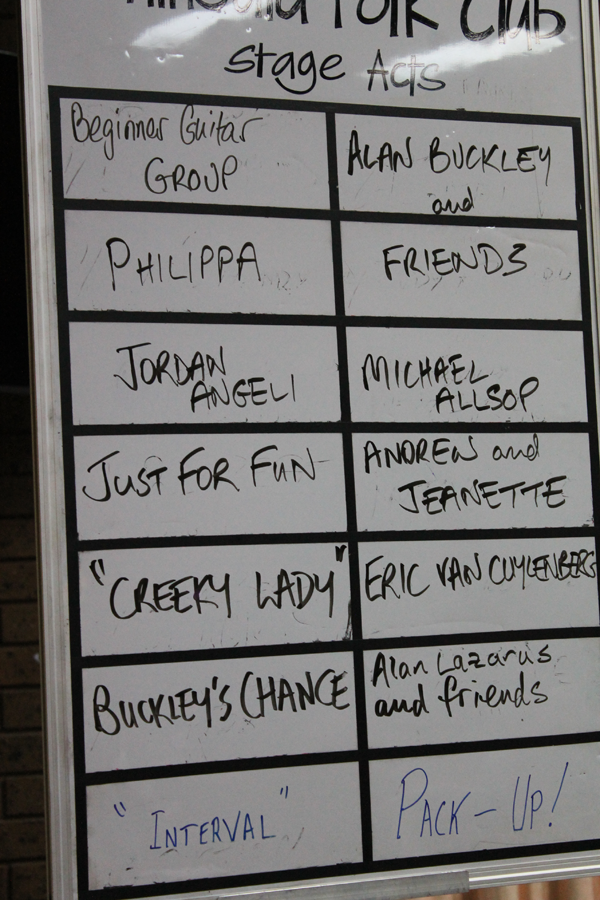 Folk Club
Stage Acts
Beginner Guitar
GROUP
PHILIPPA
JORDAN
ANGELI
JUST FOR FUN
"CREEKY LADY"
BUCKLEY'S CHANCE
"INTERVAL"
ALAN BUCKLEY
and
FRIENDS
MICHAEL
ALLSOP
ANDREW and
JEANETTE
ERIC VAN CUYLENBERG
Alan Lazarus
and friends
PACK-UP!